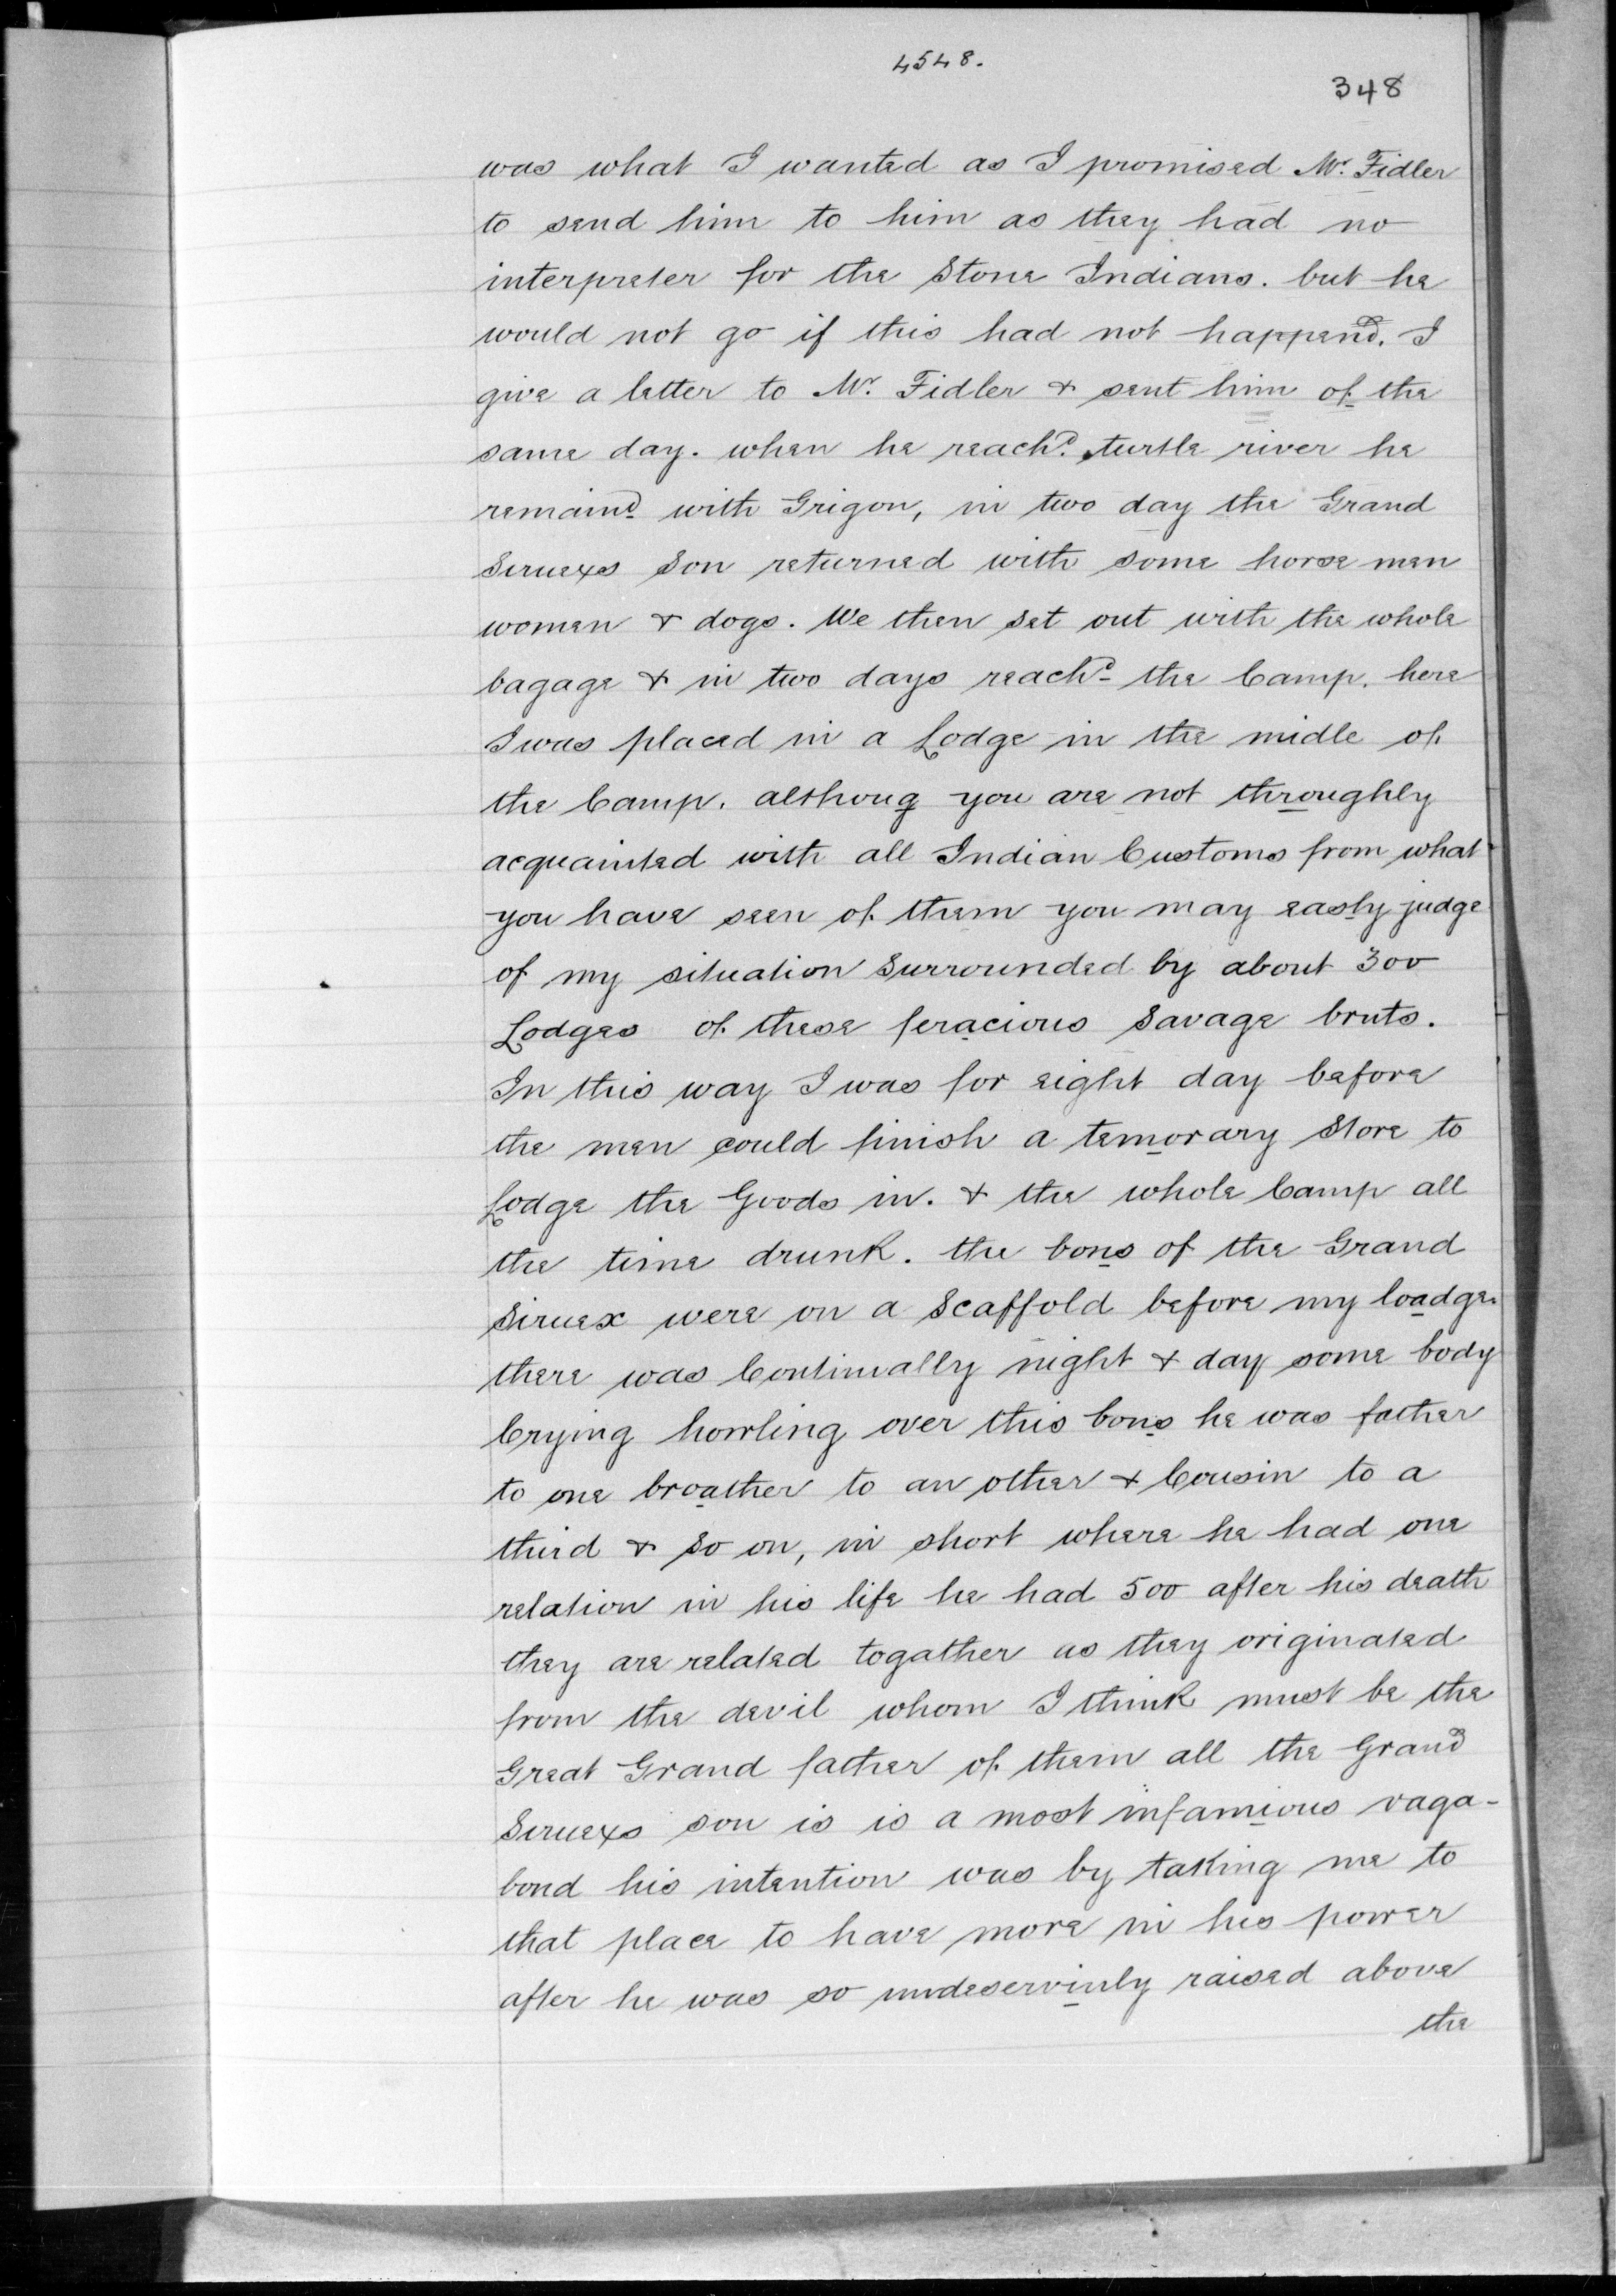 4548.
348
was what I wanted as I promised Mr. Fidler
to send him to him as they had no
interpreter for the Stone Indians. but he
would not go if this had not happend. I
give a letter to Mr. Fidler & sent him of the
same day. when he reachd. turtle river he
remaind with Grigon, in two day the Grand
Siruexs Son returned with some horse men
women & dogs. We then set out with the whole
bagage & in two days reachd the Camp. here
I was placed in a Lodge in the midle of
the Camp. althoug you are not throughly
acquainted with all Indian Customs from what
you have seen of them you may easly judge
of my situation Surrounded by about 300
Lodges of these feracious Savage bruts.
In this way I was for eight day before
the men could finish a temorary Store to
Lodge the Goods in. & the whole Camp all
the time drunk. the bons of the Grand
Siruex were on a Scaffold before my loadge.
there was Continually night & day some body
Crying howling over this bons he was father
to one broather to an other & Cousin to a
third & so on, in short where he had one
relation in his life he had 500 after his death
they are related togather as they originated
from the devil whom I think must be the
Great Grand father of them all the Grand
Siruexs son is is a most infamious vaga-
bond his intention was by taking me to
that place to have more in his power
after he was so undeservinly raised above
the